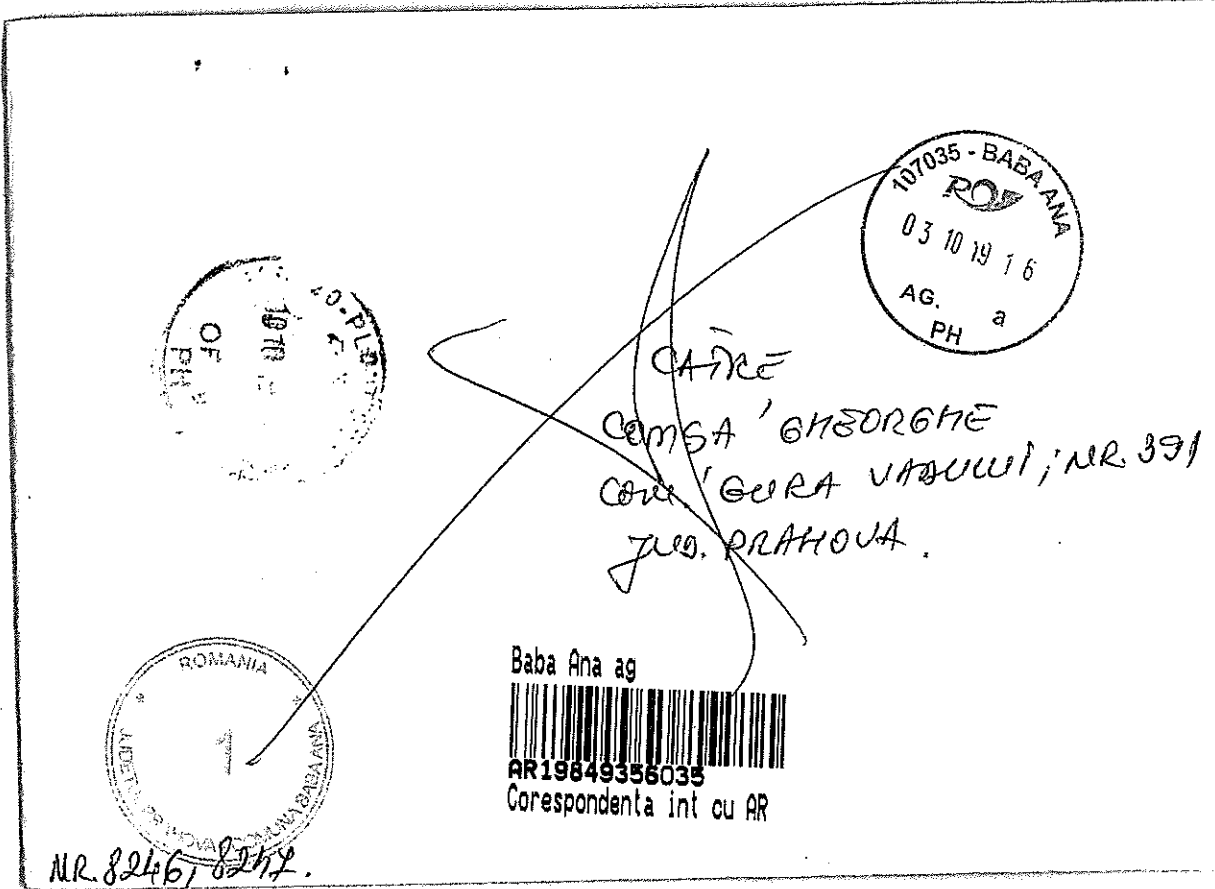 107035 - BABA ANA
03 10 19 16
AG. a
PH
OF
PH
CĂTRE
COMȘA GHEORGHE
COM. GURA VADULUI; NR. 391
JUD. PRAHOVA.
Baba Ana ag
AR19849356035
Corespondenta int cu AR
ROMANIA
1
JUDEȚUL PRAHOVA COMUNA BABA ANA
NR. 8246, 8247.